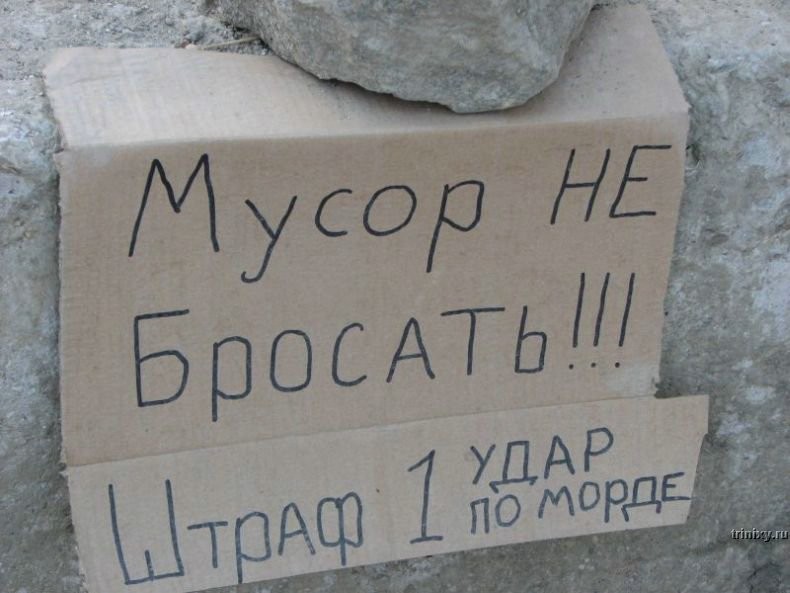 Мусор НЕ
Бросать!!!
Штраф 1 УДАР
ПО МОРДЕ
trinixy.ru